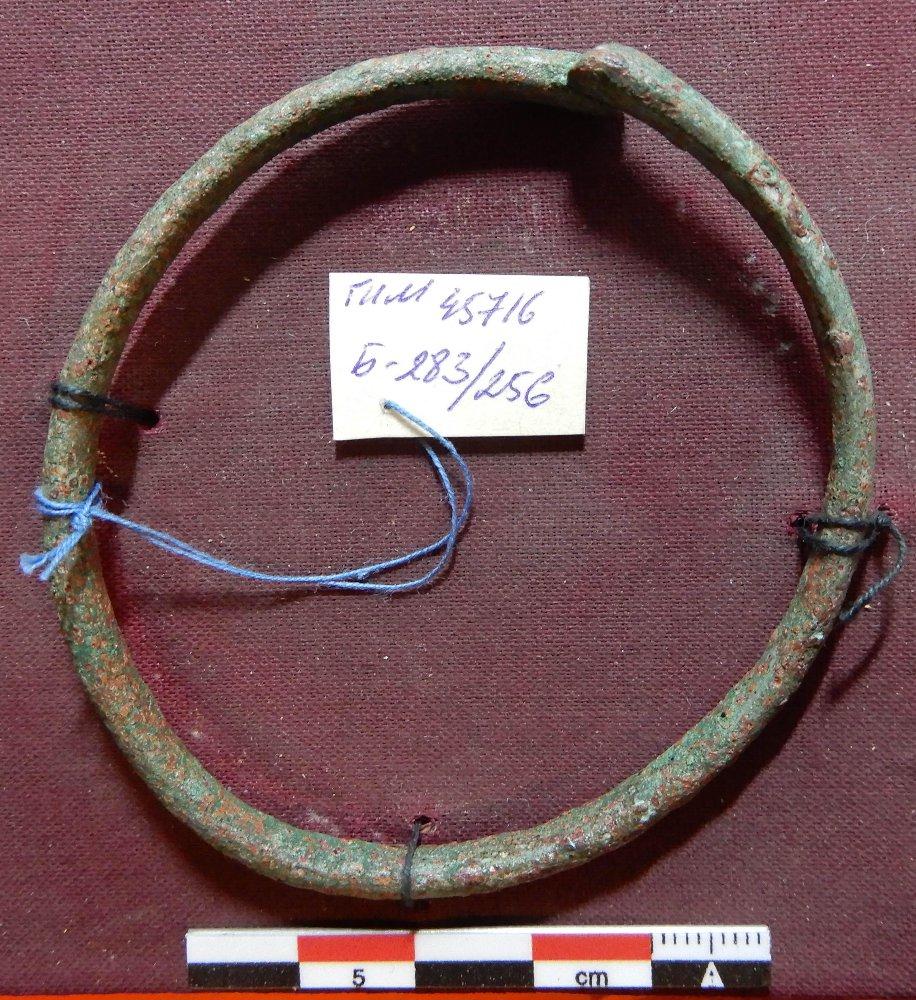 ГИМ 45716
Б-283/256
5 cm A